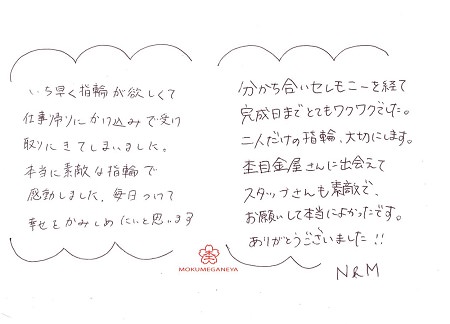 いち早く指輪が欲しくて
仕事帰りにかけ込みで受け
取りにきてしまいました。
本当に素敵な指輪で
感動しました。毎日つけて
幸せをかみしめたいと思います
分かち合いセレモニーを経て
完成日までとてもワクワクでした。
二人だけの指輪、大切にします。
杢目金屋さんに出会えて
スタッフさんも素敵で、
お願いして本当によかったです。
ありがとうございました!!
N&M
MOKUMEGANEYA